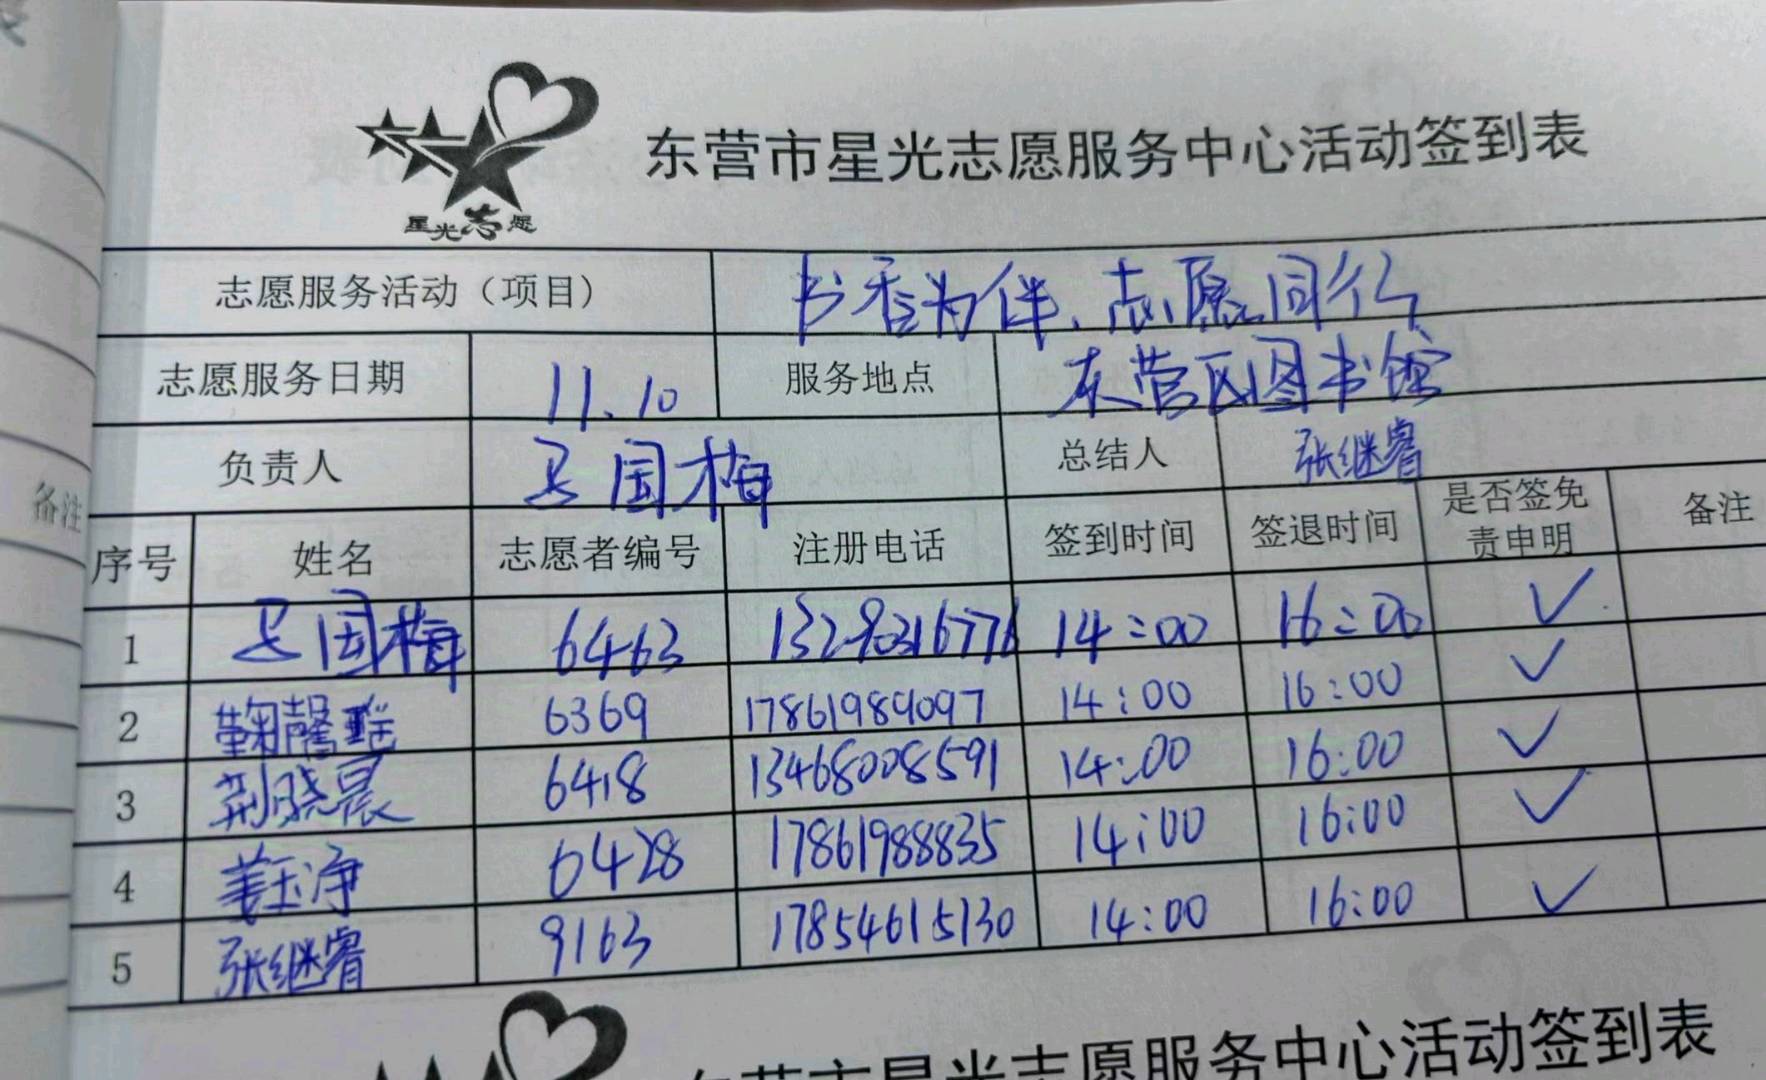 星光志愿
东营市星光志愿服务中心活动签到表
志愿服务活动（项目） 书香为伴、志愿同行
志愿服务日期 11.10 服务地点 东营区图书馆
负责人 国梅 总结人 张继睿
备注
序号 姓名 志愿者编号 注册电话 签到时间 签退时间 是否签免责申明 备注
1 国梅 6463 13290316776 14:00 16:00 ✓
2 鞠馨瑶 6369 17861989097 14:00 16:00 ✓
3 荆晓晨 6418 13468008591 14:00 16:00 ✓
4 姜玉净 6428 17861988835 14:00 16:00 ✓
5 张继睿 9163 17854615130 14:00 16:00 ✓
东营市星光志愿服务中心活动签到表